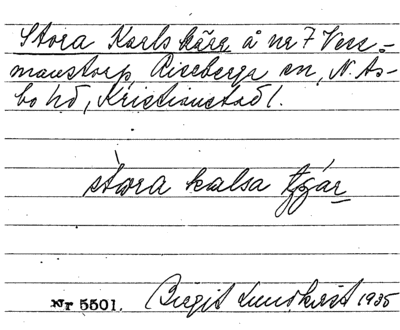 Stora Karls kärr å nr 7 Vess-
manstorp, Riseberga sn, N. Ås-
bo hd, Kristianstad l.
stora kalsa tjär
Nr 5501. Birgit Lundkvist 1935